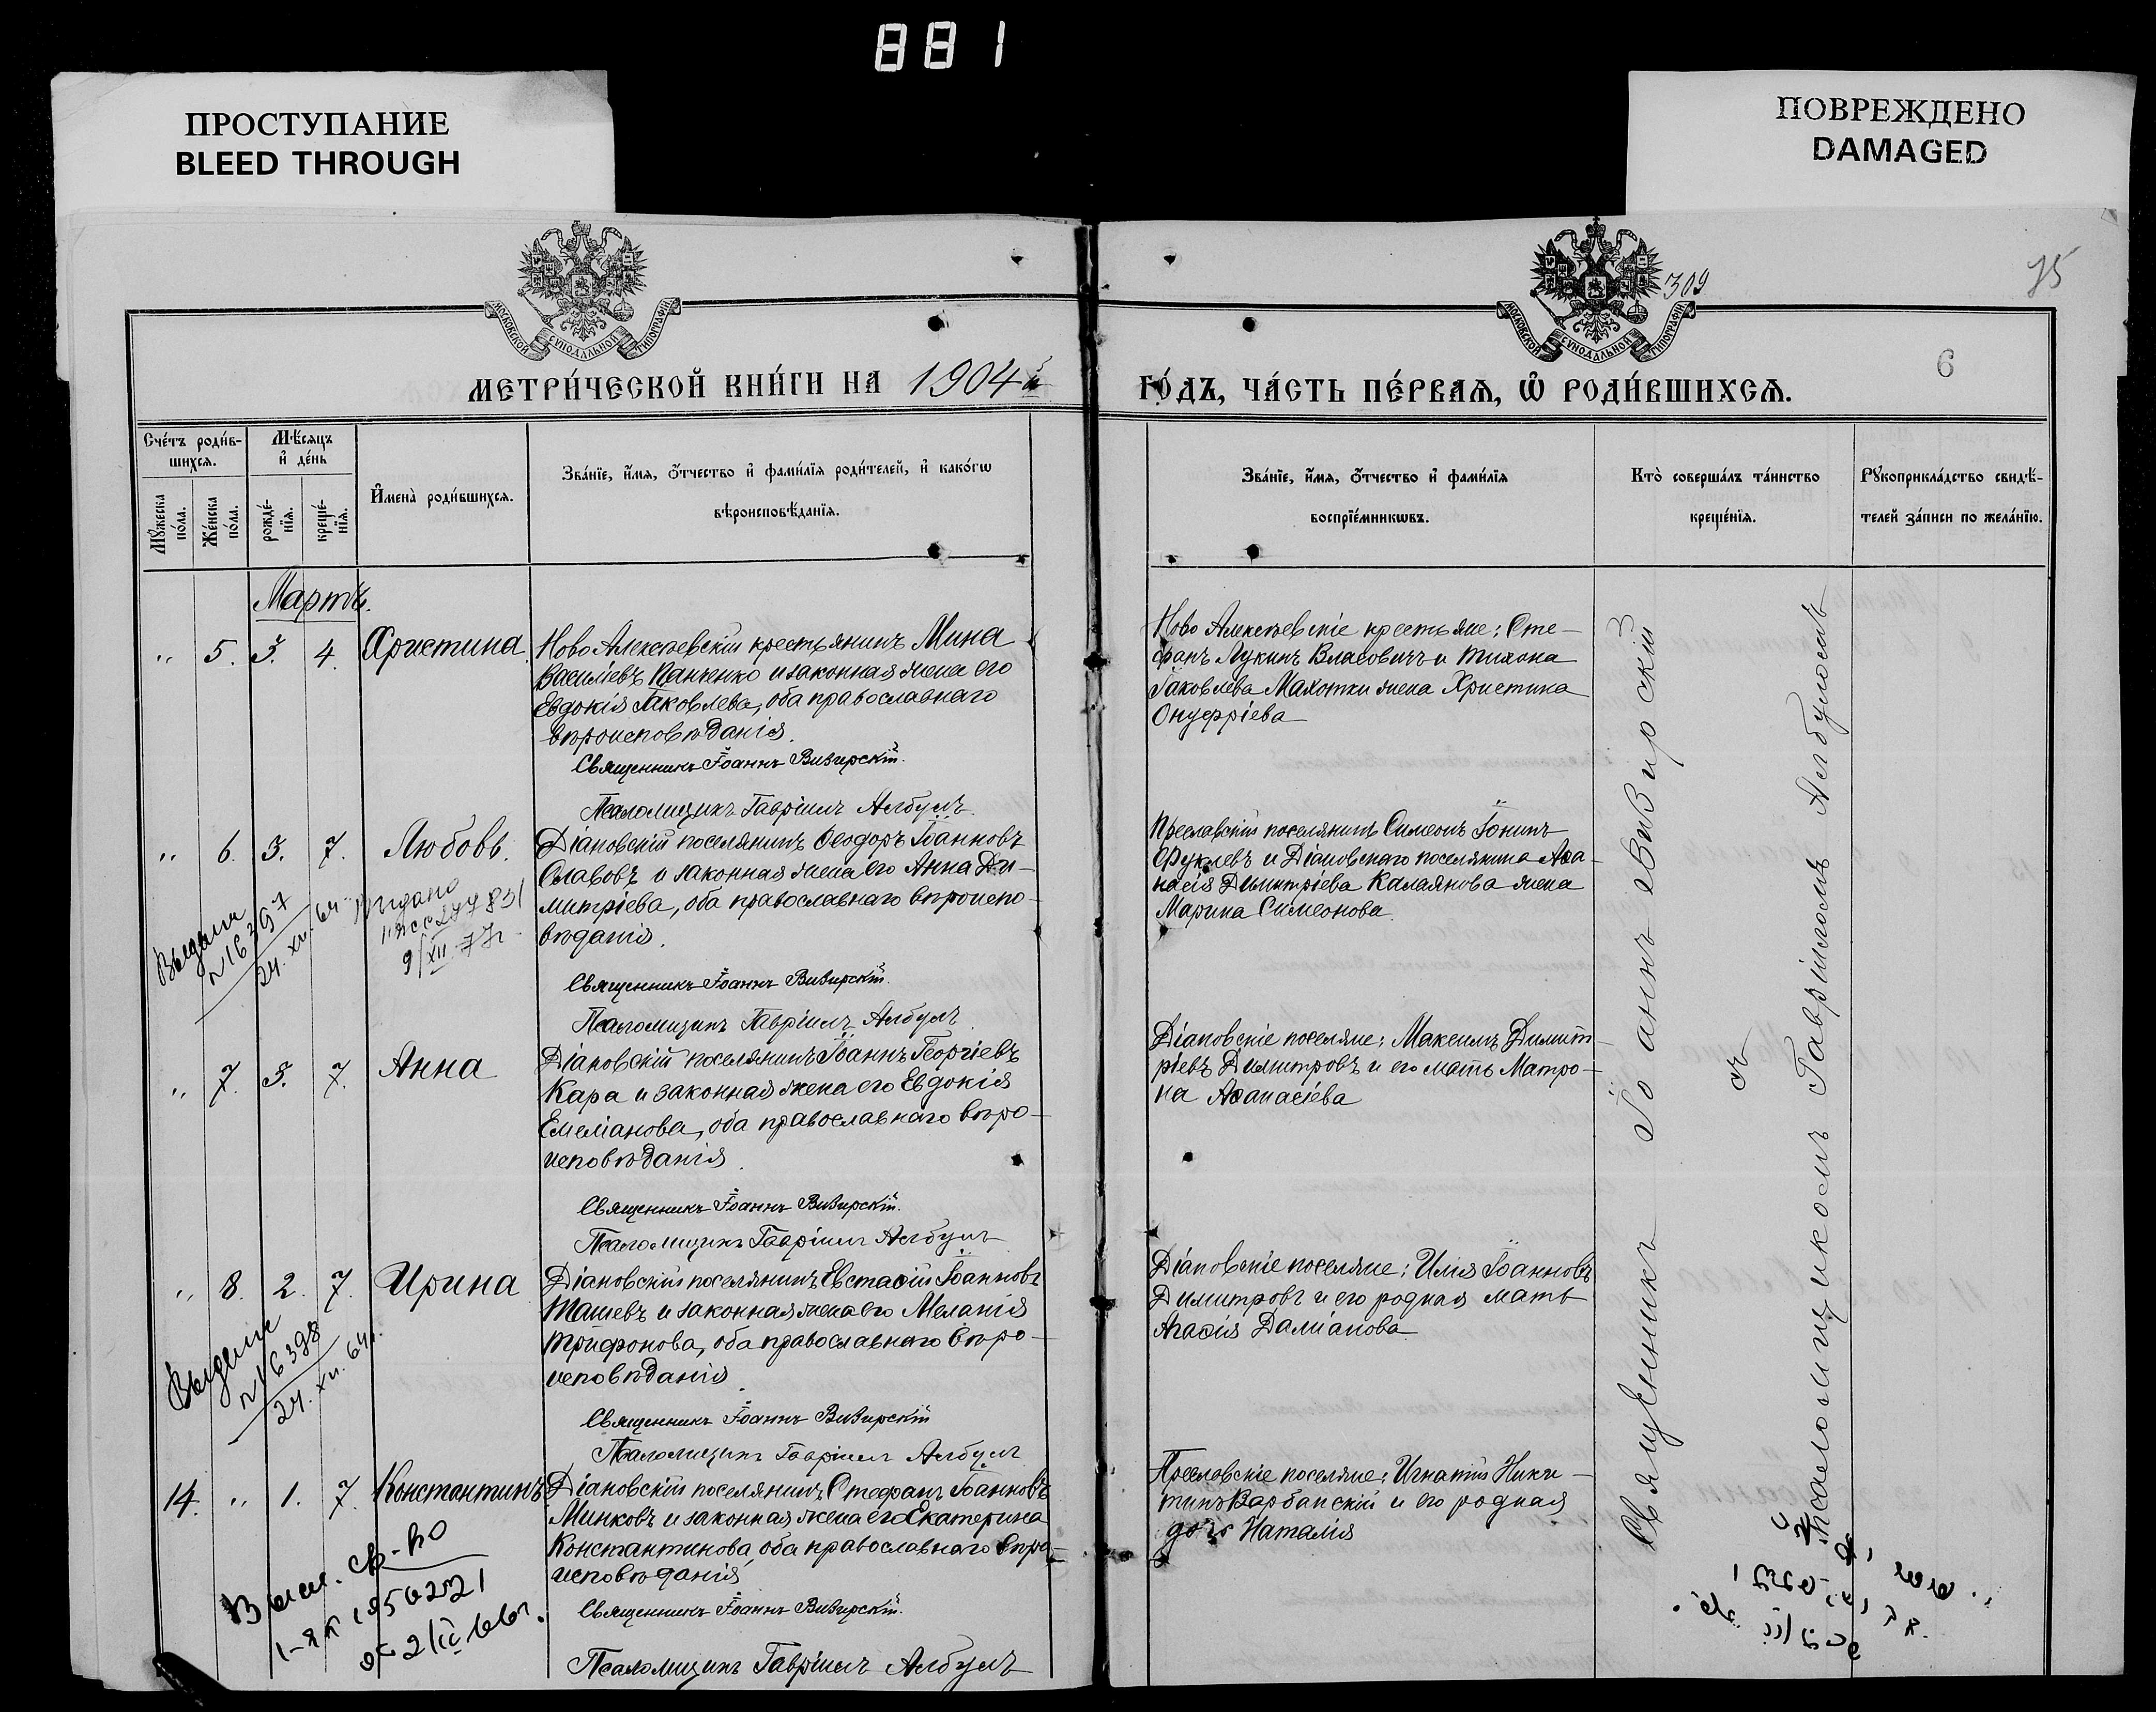 881
ПРОСТУПАНИЕ
BLEED THROUGH
ПОВРЕЖДЕНО
DAMAGED
309
75
6
МОСКОВСКОЙ СѴНОДАЛЬНОЙ ТИПОГРАФІИ
МОСКОВСКОЙ СѴНОДАЛЬНОЙ ТИПОГРАФІИ
МЕТРИ́ЧЕСКОЙ КНИ́ГИ НА 1904й
ГО́ДЪ, ЧА́СТЬ ПЕ́РВАѦ, Ѡ҆ РОДИ́ВШИХСѦ.
Сче́тъ роди́в-
шихсѧ.
Мꙋ́жеска по́ла.
Же́нска по́ла.
Мѣ́сѧцъ
и҆ де́нь
рожде́-
нїѧ.
креще́-
нїѧ.
И҆мена̀ роди́вшихсѧ.
Зва́нїе, и҆́мѧ, ѻ҆́тчество и҆ фами́лїѧ роди́телей, и҆ како́гѡ
вѣроисповѣ́данїѧ.
Зва́нїе, и҆́мѧ, ѻ҆́тчество и҆ фами́лїѧ
воспрїе́мникѡвъ.
Кто̀ соверша́лъ та́инство
креще́нїѧ.
Рꙋкоприкла́дство свидѣ́-
телей за́писи по жела́нїю.
Мартъ.
" 5. 3. 4. Христина
Ново Алексѣевскій крестьянинъ Мина
Василіевъ Панченко и законная жена его
Евдокія Іаковлева, оба православнаго
вѣроисповѣданія.
Священникъ Іоаннъ Визирскій.
Псаломщикъ Гавріилъ Албулъ
Ново Алексѣевскіе крестьяне: Сте-
фанъ Лукинъ Власовичъ и Тихона
Іаковлева Махотки жена Христина
Онуфріева
" 6. 3. 7. Любовь.
Діановскій поселянинъ Ѳеодоръ Іоанновъ
Славовъ и законная жена его Анна Ди-
митріева, оба православнаго вѣроиспо-
вѣданія.
Священникъ Іоаннъ Визирскій.
Псаломщикъ Гавріилъ Албулъ
Преславскій поселянинъ Симеонъ Іонинъ
Фуклевъ и Діановскаго поселянина Аѳа-
насія Димитріева Калаянова жена
Марина Симеонова.
Выдано
24. XII. 64 г.
Выдано
9/XII-77г
" 7. 3. 7. Анна
Діановскій поселянинъ Іоаннъ Георгіевъ
Кара и законная жена его Евдокія
Емеліанова, оба православнаго вѣро-
исповѣданія.
Священникъ Іоаннъ Визирскій.
Псаломщикъ Гавріилъ Албулъ
Діановскіе поселяне: Максимъ Димит-
ріевъ Димитровъ и его мать Матро-
на Аѳанасіева
" 8. 2. 7. Ирина
Діановскій поселянинъ Евстаѳій Іоанновъ
Ташевъ и законная жена его Меланія
Трифонова, оба православнаго вѣро-
исповѣданія.
Священникъ Іоаннъ Визирскій
Псаломщикъ Гавріилъ Албулъ
Діановскіе поселяне: Илія Іоанновъ
Димитровъ и его родная мать
Агаѳія Даміанова
Выдано
№16398
24. XII. 64 г.
14. " 1. 7. Константинъ
Діановскій поселянинъ Стефанъ Іоанновъ
Минковъ и законная жена его Екатерина
Константинова, оба православнаго вѣро-
исповѣданія
Священникъ Іоаннъ Визирскій.
Псаломщикъ Гавріилъ Албулъ
Преславскіе поселяне: Игнатій Ники-
тинъ Варбанскій и его родная
дочь Наталія
Священникъ Іоаннъ Визирскій
съ
Псаломщикомъ Гавріиломъ Албуломъ